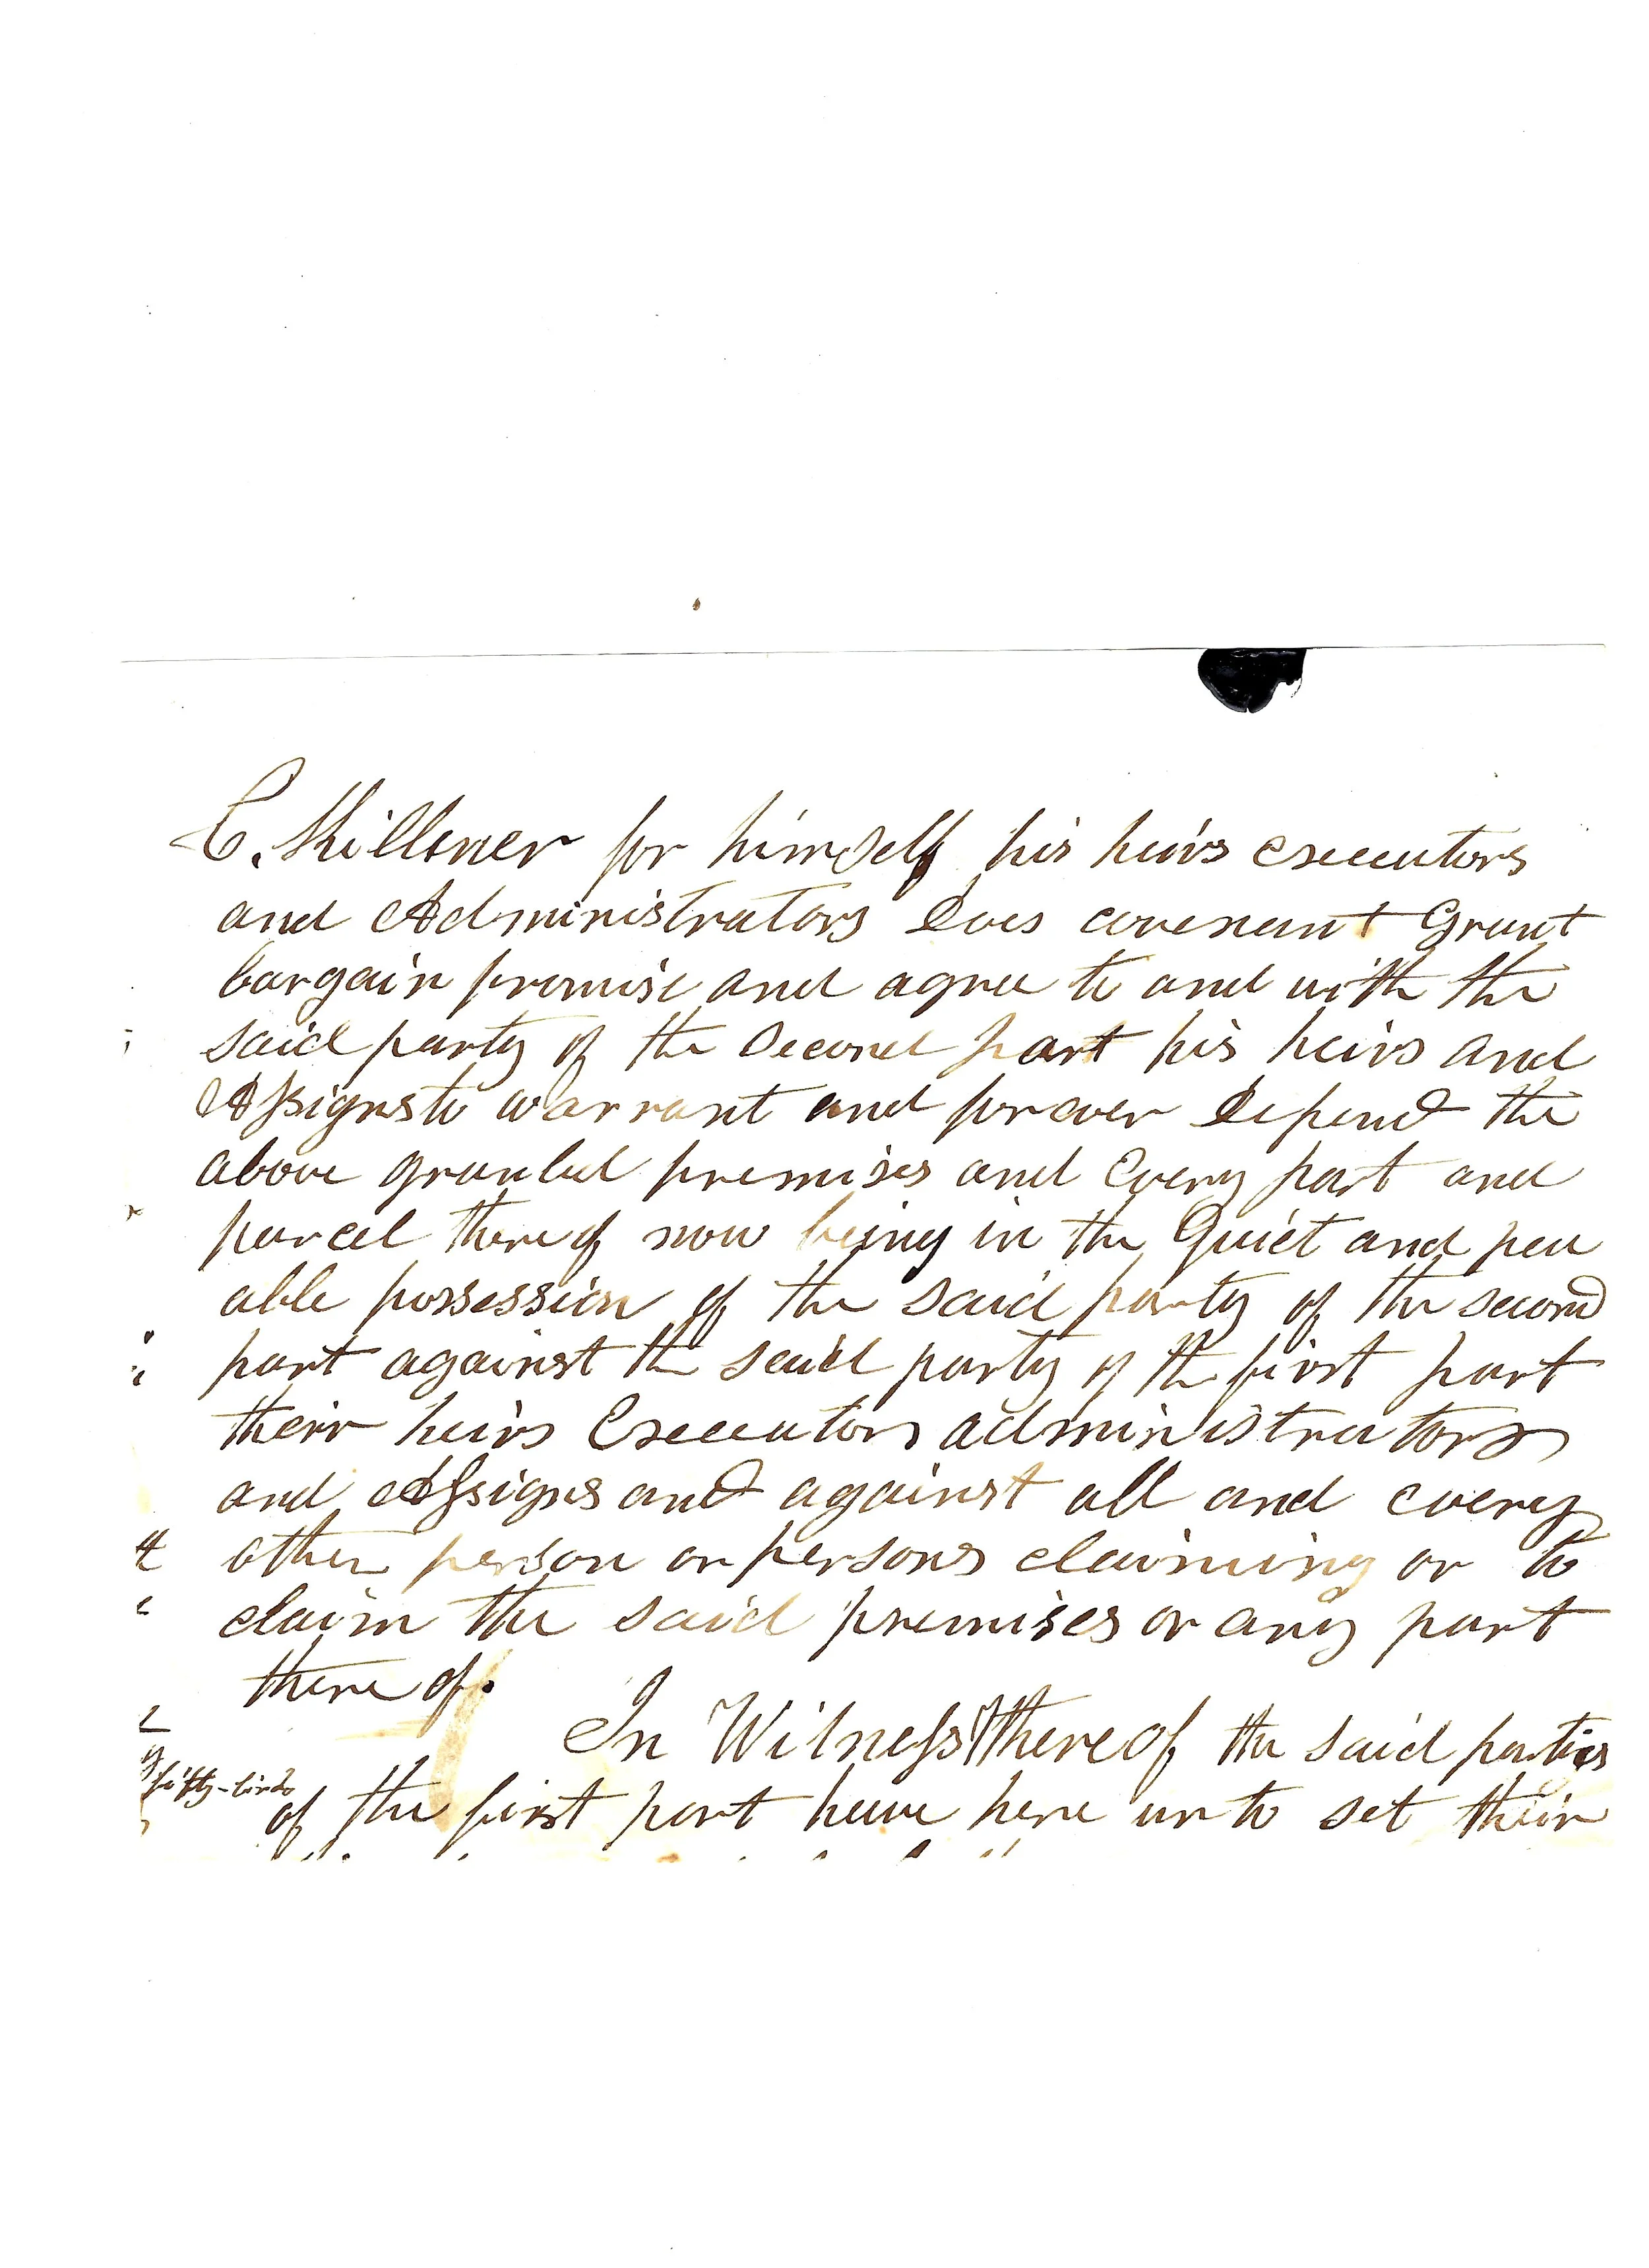 C. Millener for himself his heirs executors
and Administrators does covenant Grant
bargain promise and agree to and with the
said party of the second part his heirs and
Assigns to warrant and forever defend the
above granted premises and Every part and
parcel there of now being in the Quiet and pea
able possession of the said party of the second
part against the said party of the first part
their heirs Executors administrators
and Assigns and against all and every
other person or persons claiming or to
claim the said premises or any part
there of.
In Witness Whereof the said parties
of the first part have here unto set their